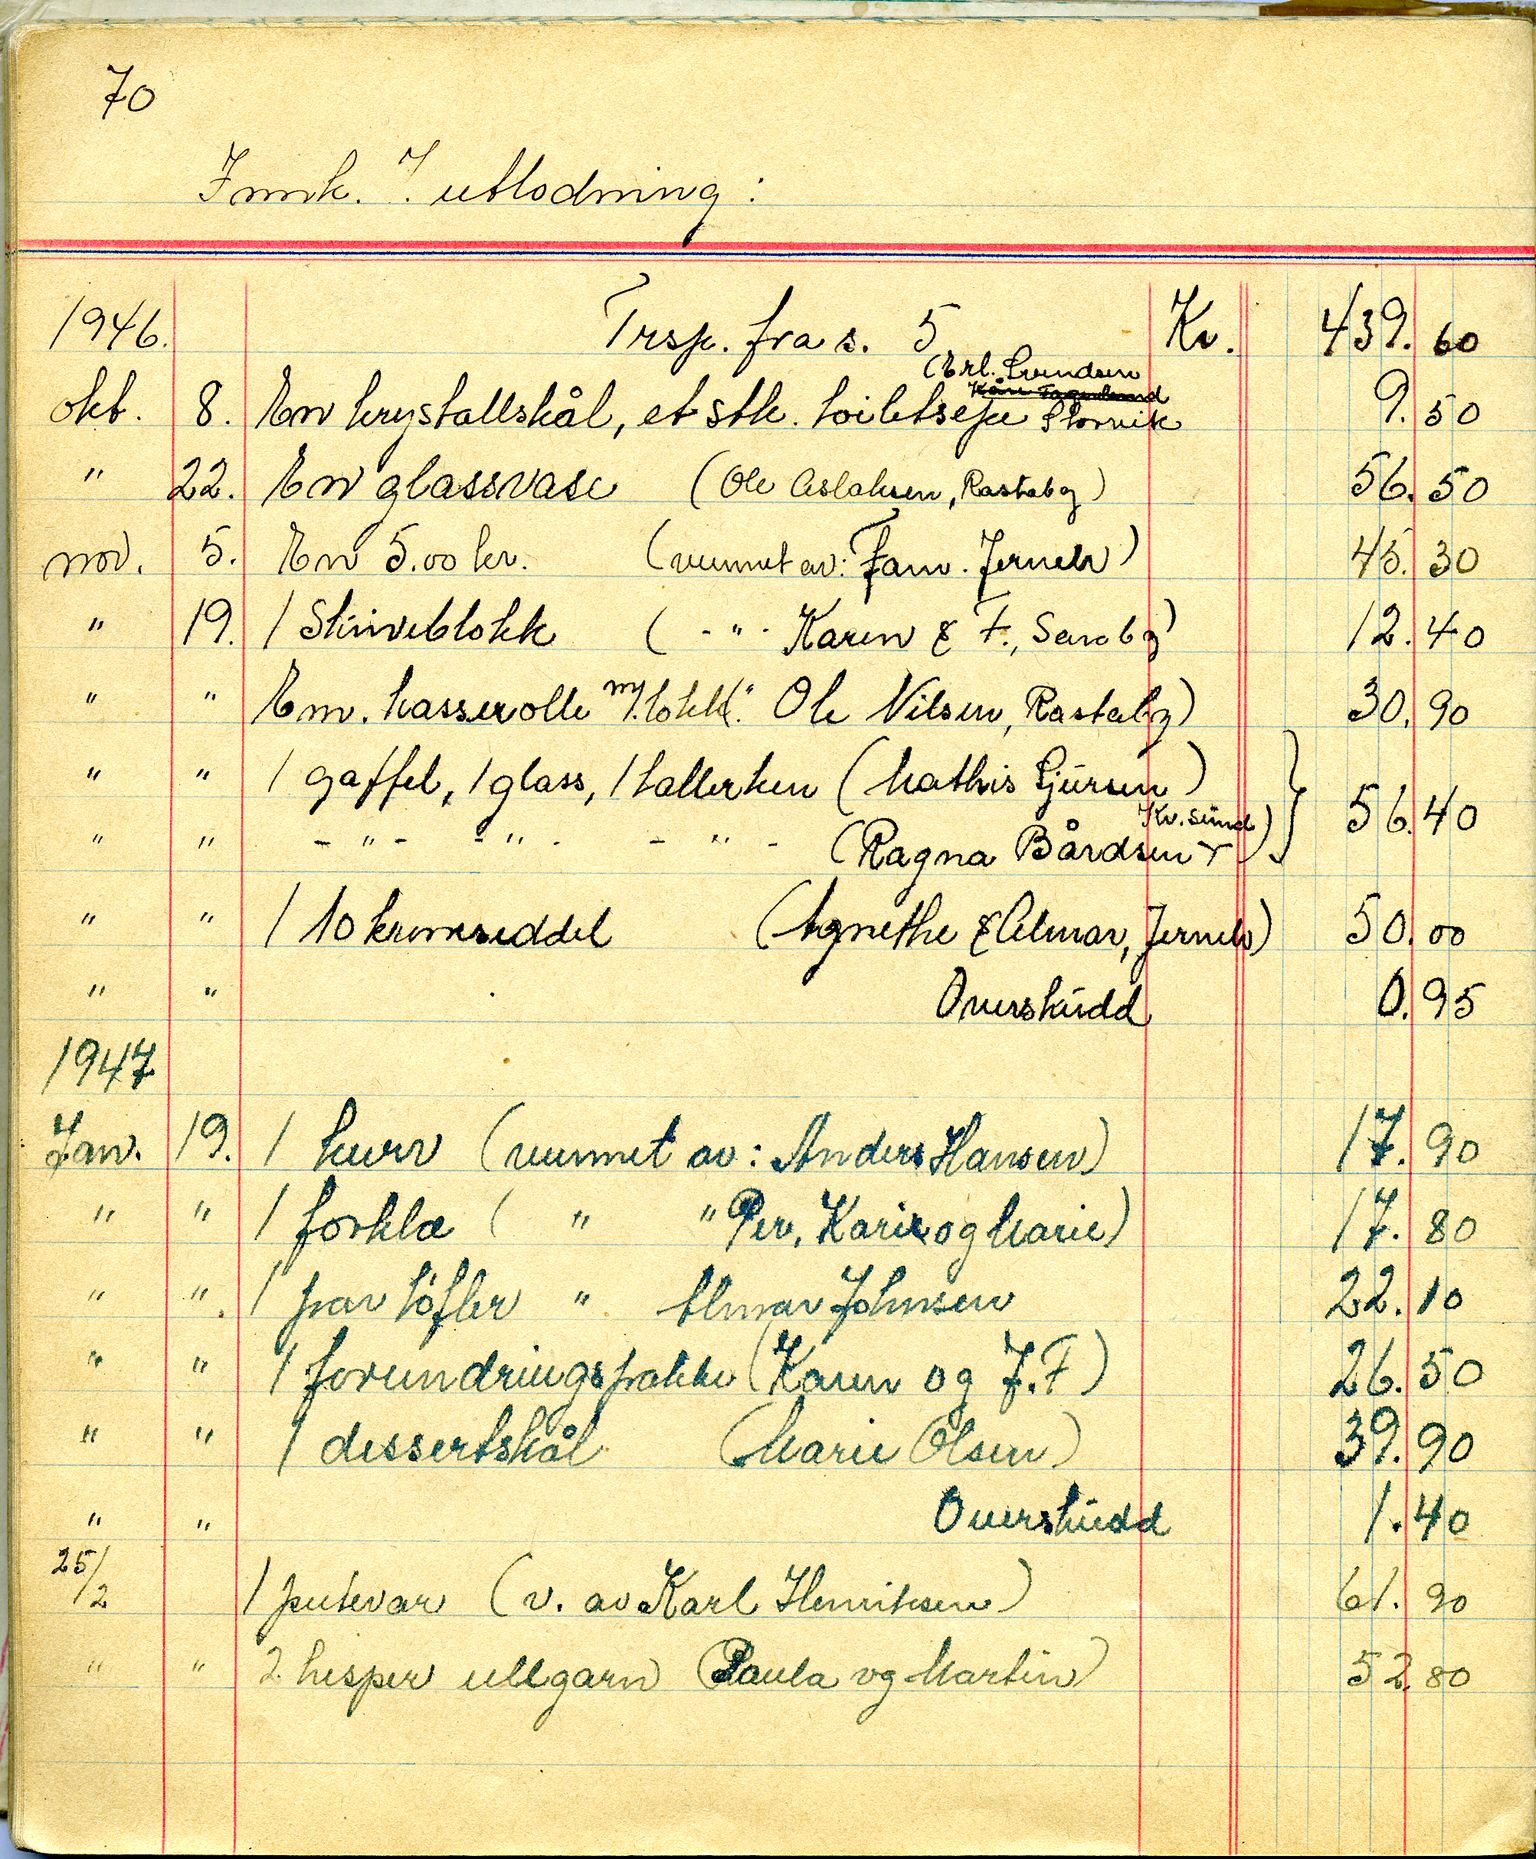 70
Innk. I. utlodning:
1946. Trsp. fra s. 5 Kr. 439.60
(Erl. Svendsen
okt. 8. En krystallskål, et stk. toiletsepe Storvik 9.50
" 22. En glassvase (Ole Aslaksen, Rastabg) 56.50
nov. 5. En 5.00 kr. (vunnet av: Fam. Jernelv) 45.30
" 19. 1 Skriveblokk ( - " - Karen & F., Sandbg) 12.40
" " Em. kasserolle m/lokk (" Ole Nilsen, Rastabg) 30.90
" " 1 gaffel, 1 glass, 1 tallerken (Mathis Sjursen) } 56.40
Kv.sund)
" " - " - - " - - " - (Ragna Bårdsen
" " 1 10 kroneseddel (Agnethe & Almar, Jernelv) 50.00
" " Overskudd 0.95
1947
Jan. 19. 1 kurv (vunnet av: Anders Hansen) 17.90
" " 1 forkla ( " " Per, Karin og Marie) 17.80
" ". 1 par töfler " Almar Johnsen 22.10
" " 1 forundringspakke (Karen og J.F) 26.50
" " 1 dessertskål (Marie Olsen) 39.90
" " Overskudd 1.40
25/2 1 putevar (v. av Karl Henriksen) 61.90
" " 2 hesper ullgarn (Paula og Martin) 52.80